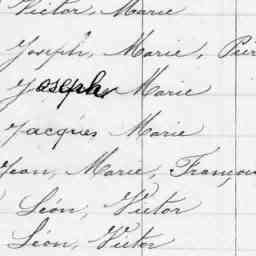 Victor, Marie
Joseph, Marie,
Joseph, Marie
Jacques, Marie
Jean, Marie, François
Léon, Victor
Léon, Victor